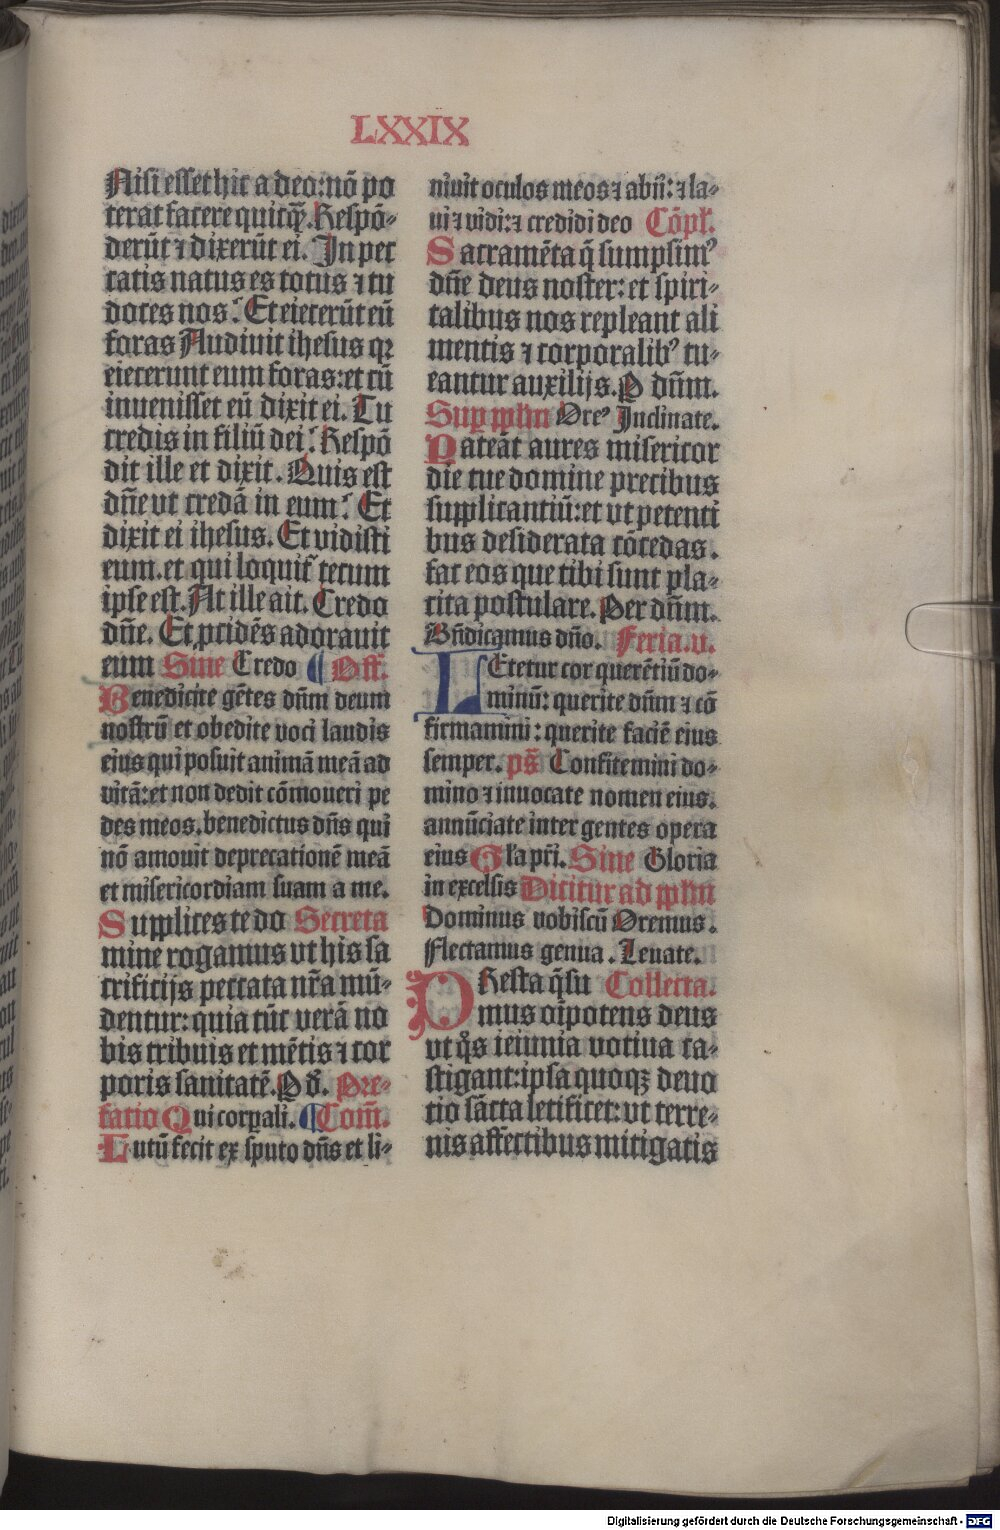 LXXIX
Nisi esset hic a deo: nō po
terat facere quicq̄. Respō-
derūt ⁊ dixerūt ei. In pec
catis natus es totus ⁊ tu
doces nos? Et eiecerūt eū
foras Audiuit ihesus qꝛ
eiecerunt eum foras: et cū
inuenisset eū dixit ei. Tu
credis in filiū dei? Respō
dit ille et dixit. Quis est
dn̄e vt credā in eum? Et
dixit ei ihesus. Et vidisti
eum. et qui loquit᷑ tecum
ipse est. At ille ait. Credo
dn̄e. Et ꝓcidēs adorauit
eum Sine Credo ¶ Off.
Benedicite gētes dn̄m deum
nostrū et obedite voci laudis
eius qui posuit animā meā ad
vitā: et non dedit cōmoueri pe
des meos. benedictus dn̄s qui
nō amouit deprecationē meā
et misericordiam suam a me.
Supplices te do Secreta
mine rogamus vt his sa
crificijs peccata nr̄a mū-
dentur: quia tūc verā no
bis tribuis et mētis ⁊ cor
poris sanitatē. P d̄. Pre-
fatio Qui corꝑali. ¶ Com̄.
Lutū fecit ex sputo dn̄s et li-
niuit oculos meos ⁊ abij: ⁊ la-
ui ⁊ vidi: ⁊ credidi deo Cōpl̄.
Sacramēta q̄ sumpsimꝰ
dn̄e deus noster: et spiri-
talibus nos repleant ali
mentis ⁊ corporalibꝰ tu-
eantur auxilijs. P dn̄m.
Suꝑ pplm Oreꝰ Inclinate.
Pateāt aures misericor
die tue domine precibus
supplicantiū: et vt petenti
bus desiderata cōcedas.
fac eos que tibi sunt pla-
cita postulare. Per dn̄m.
Bn̄dicamus dn̄o. Feria. v.
LEtetur cor querētiū do-
minū: querite dn̄m ⁊ cō
firmamini: querite faciē eius
semper. ps̄ Confitemini do-
mino ⁊ inuocate nomen eius.
annūciate inter gentes opera
eius Gl̄a pr̄i. Sine Gloria
in excelsis Dicitur ad pplm
Dominus vobiscū Oremus.
Flectamus genua. Leuate.
PResta q̄su Collecta.
mus oīpotens deus
vt q̊s ieiunia votiua ca-
stigant: ipsa quoqꝫ deuo
tio sācta letificet: vt terre-
nis affectibus mitigatis
Digitalisierung gefördert durch die Deutsche Forschungsgemeinschaft - DFG